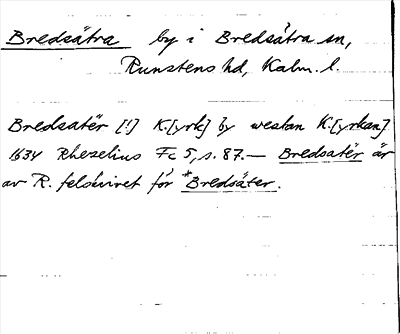 Bredsätra by i Bredsätra sn,
Runstens hd, Kalm. l.
Bredsatër [!] K.[yrk] by westan K.[yrkan]
1634 Rhezelius Fc 5, s. 87. — Bredsatër är
av R. felskrivet för *Bredsäter.